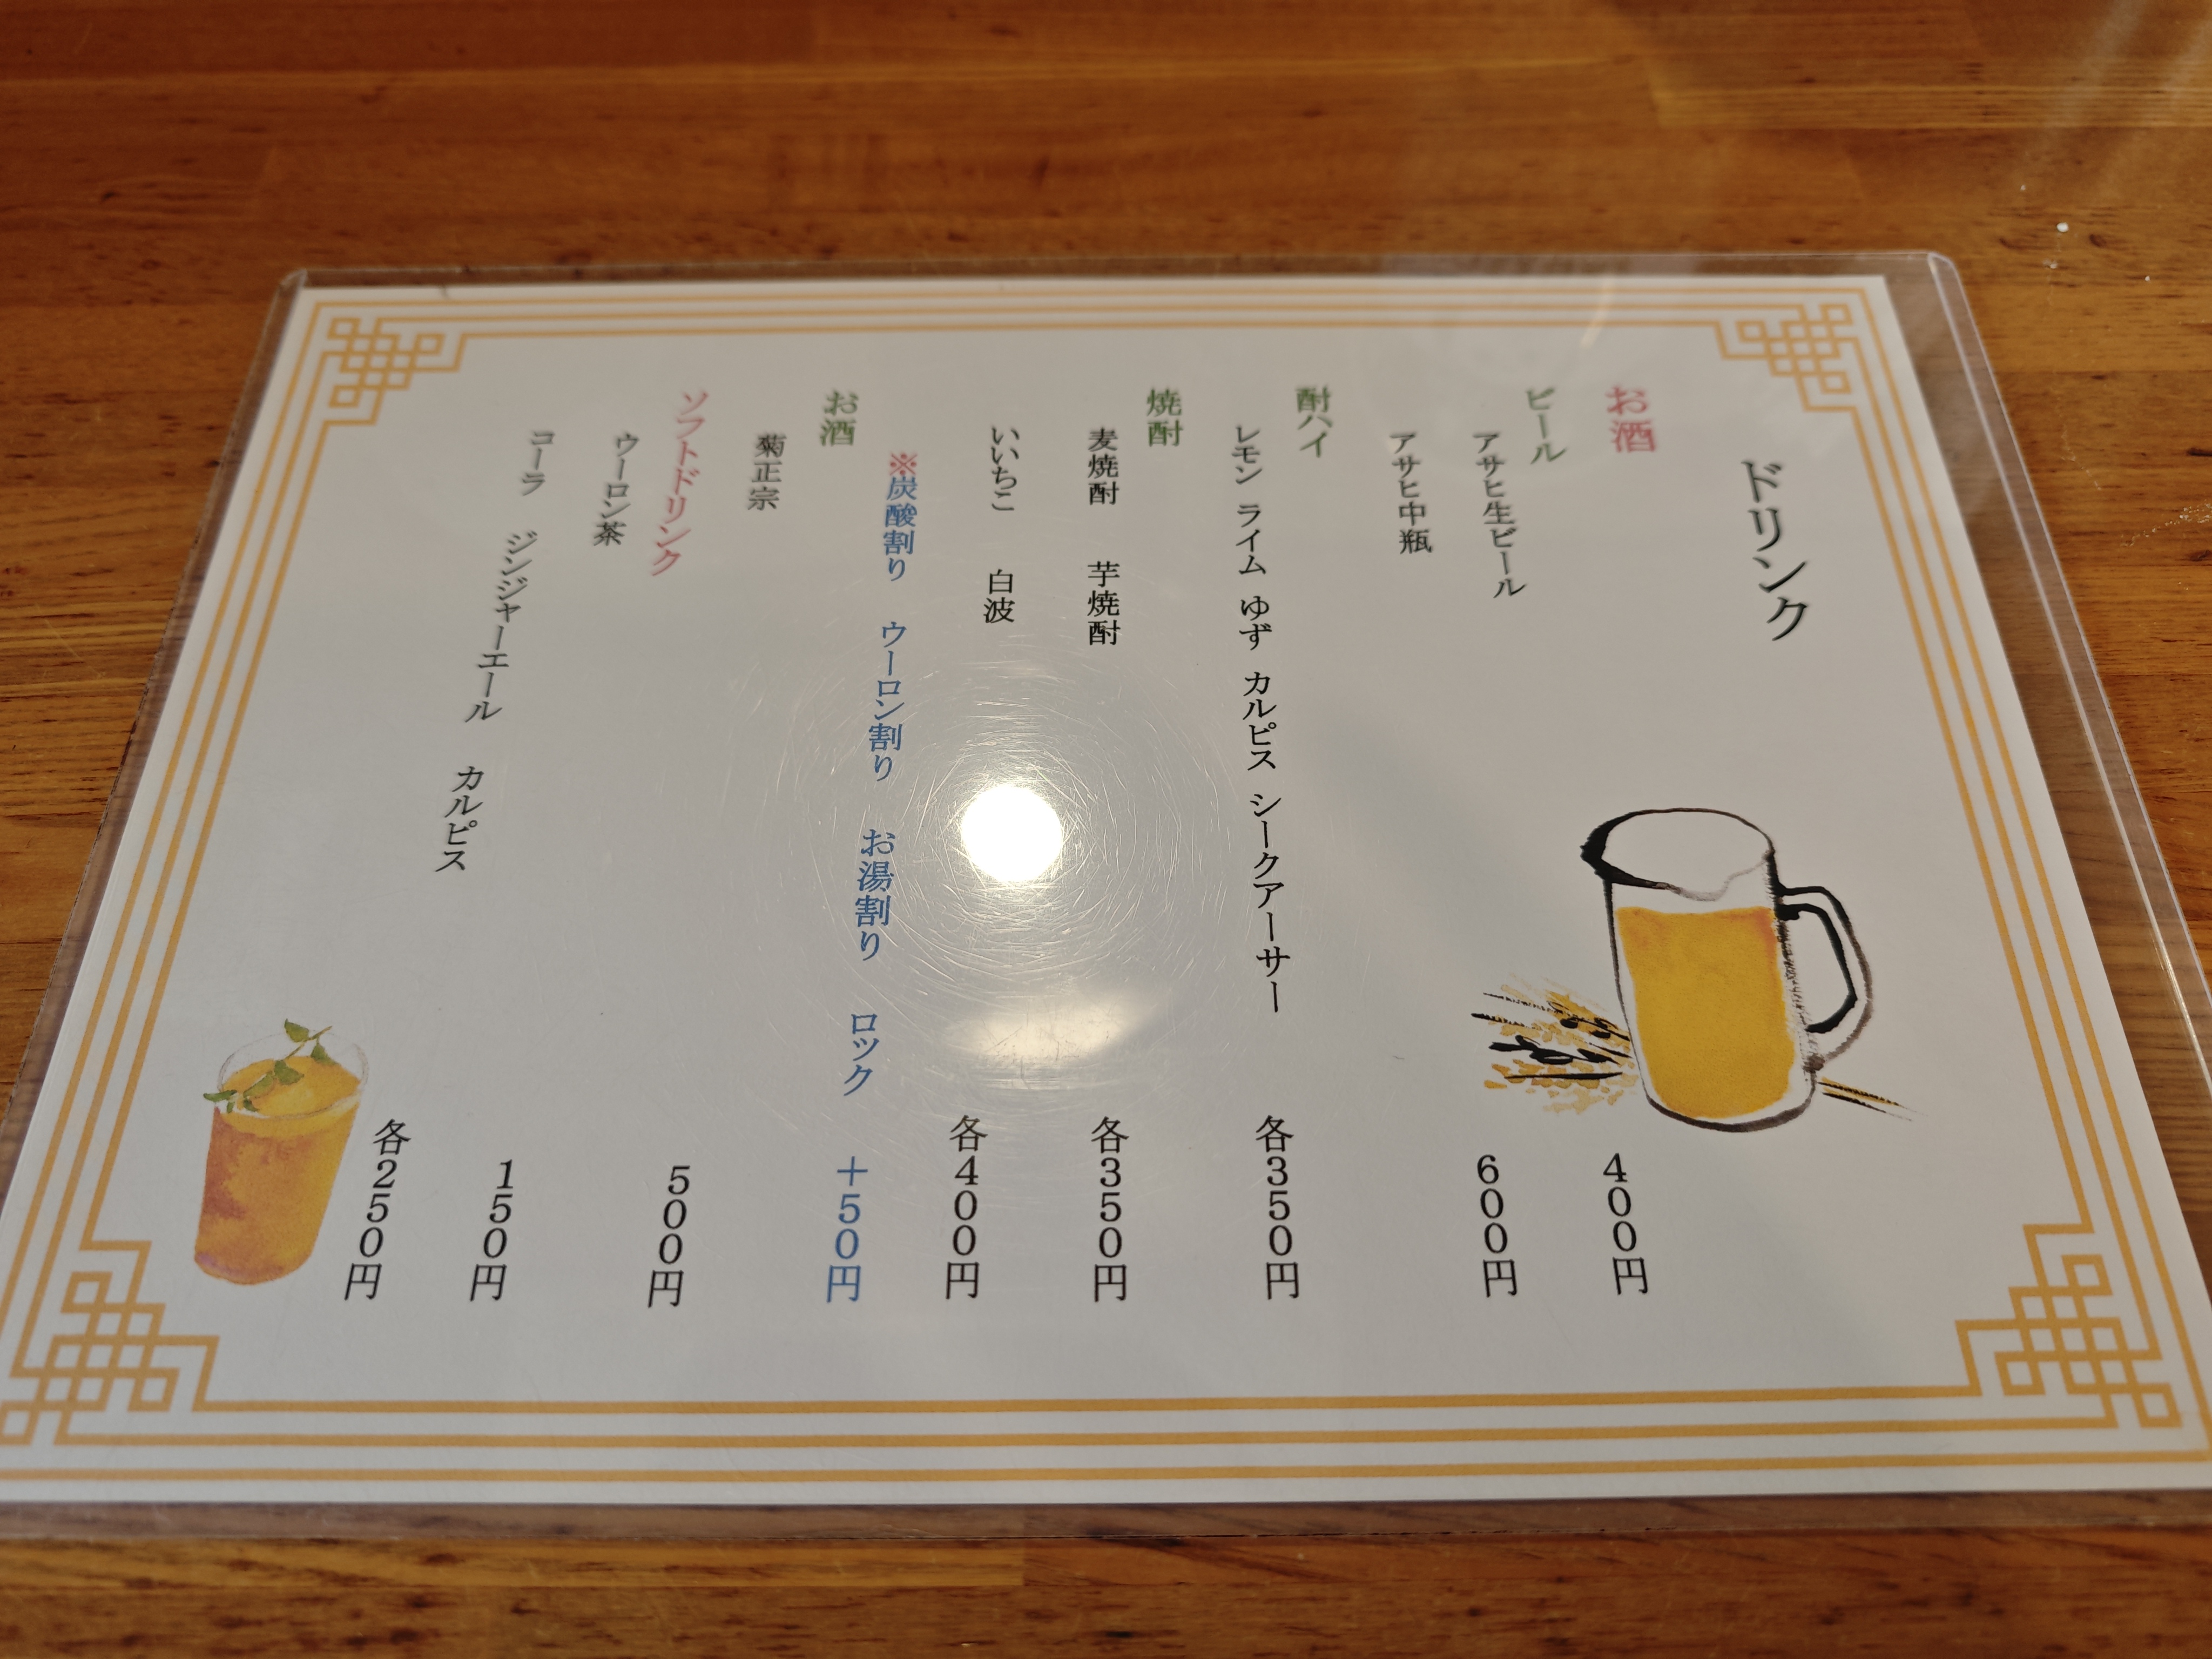 ドリンク
お酒
ビール
アサヒ生ビール 400円
アサヒ中瓶 600円
酎ハイ
レモン ライム ゆず カルピス シークアーサー 各350円
焼酎
麦焼酎 芋焼酎 各350円
いいちこ 白波 各400円
※炭酸割り ウーロン割り お湯割り ロック +50円
お酒
菊正宗 500円
ソフトドリンク
ウーロン茶 150円
コーラ ジンジャーエール カルピス 各250円